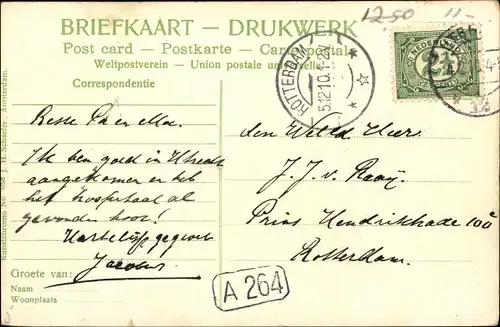 BRIEFKAART — DRUKWERK
Post card — Postkarte — Carte postale
Weltpostverein — Union postale universelle
Correspondentie
1250
11-
NEDERLAND
2½
ROTTERDAM
5.12.10.1-2V
Beste Pa en Moe.
Ik ben goed in Utrecht
aangekomen en heb
het hospitaal al
gevonden hoor!
Hartelijk gegroet
Jacobus
Den Weled Heer
J. J. v. Raaij
Prins Hendrikkade 100
Rotterdam.
Groete van:
Naam
Woonplaats
A 264
J. H. Schaefer, Amsterdam.